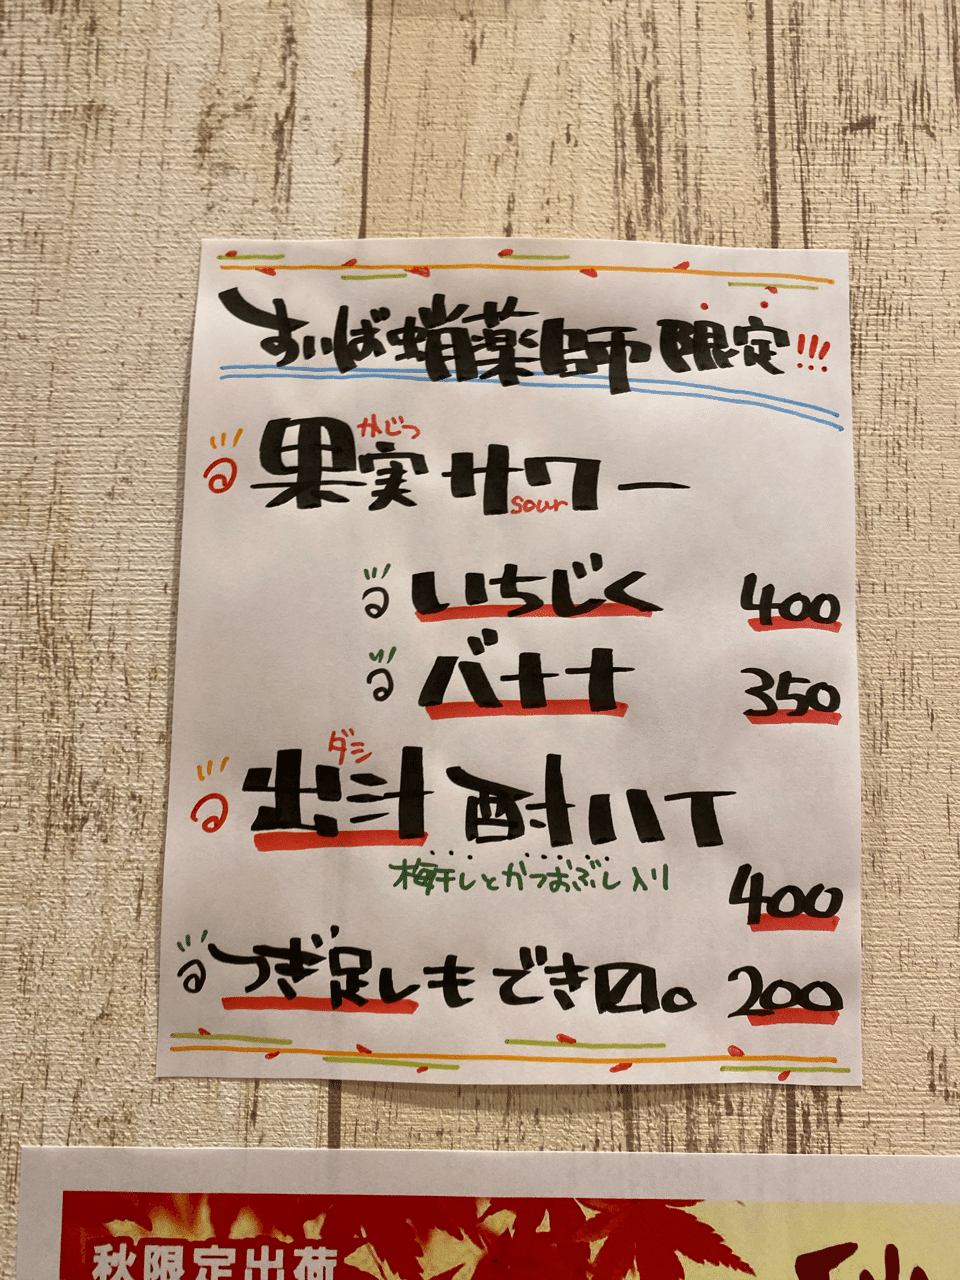 すいば蛸薬師限定!!!
果実サワー
かじつ
sour
いちじく 400
バナナ 350
出汁酎ハイ
ダシ
梅干しとかつおぶし入り
400
つぎ足しもできマス。 200
秋限定出荷